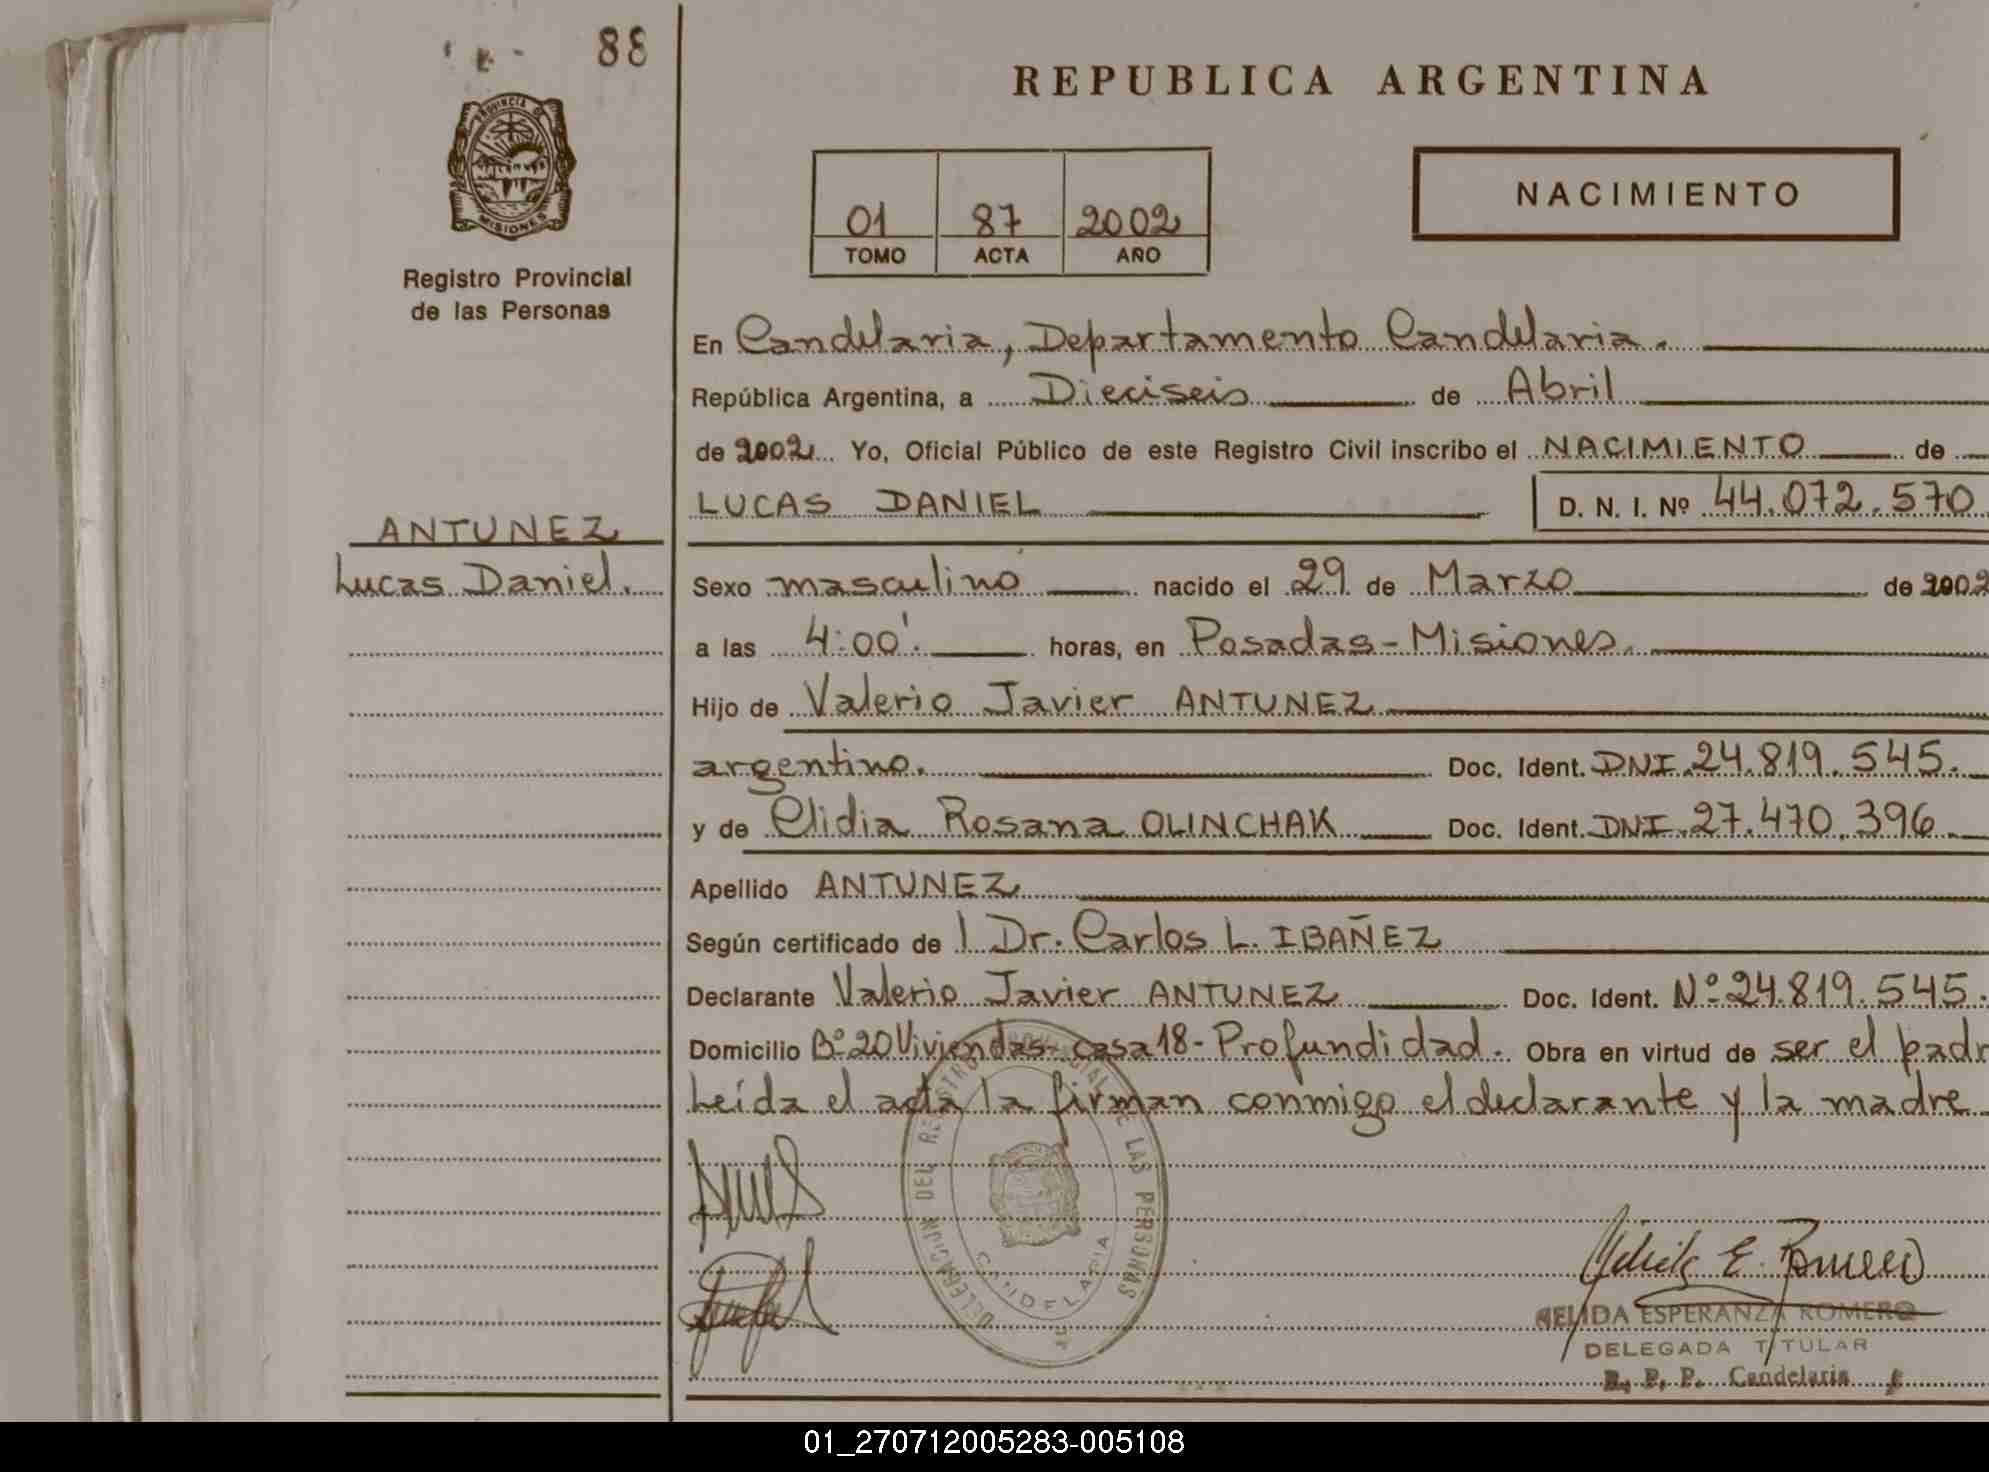 88
REPUBLICA ARGENTINA
PROVINCIA DE
MISIONES
Registro Provincial
de las Personas
NACIMIENTO
01 87 2002
TOMO ACTA AÑO
En Candelaria, Departamento Candelaria.
República Argentina, a Dieciseis de Abril
de 2002 Yo, Oficial Público de este Registro Civil inscribo el NACIMIENTO de
LUCAS DANIEL D. N. I. Nº 44.072.570
ANTUNEZ
Lucas Daniel.
Sexo masculino nacido el 29 de Marzo de 2002
a las 4:00'. horas, en Posadas-Misiones.
Hijo de Valerio Javier ANTUNEZ
argentino. Doc. Ident. DNI.24.819.545.
y de Elidia Rosana OLINCHAK Doc. Ident. DNI.27.470.396.
Apellido ANTUNEZ
Según certificado de l Dr. Carlos L. IBAÑEZ
Declarante Valerio Javier ANTUNEZ Doc. Ident. Nº 24.819.545.
Domicilio Bº 20 Viviendas- casa 18- Profundidad. Obra en virtud de ser el padr
Leída el acta la firman conmigo el declarante y la madre
DELEGACION DEL REGISTRO PROVINCIAL DE LAS PERSONAS
CANDELARIA
ESPERANZA ROMERO
DELEGADA TITULAR
R. P. P. Candelaria
01_270712005283-005108